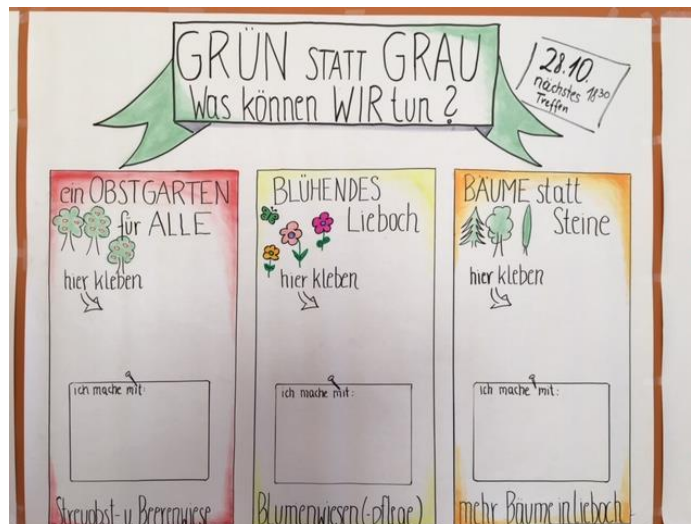 GRÜN STATT GRAU
Was können WIR tun?
28.10.
nächstes 18³⁰
Treffen
ein OBSTGARTEN
für ALLE
hier kleben
ich mache mit:
Streuobst- u. Beerenwiese
BLÜHENDES
Lieboch
hier kleben
ich mache mit:
Blumenwiesen(-pflege)
BÄUME statt
Steine
hier kleben
ich mache mit:
mehr Bäume in Lieboch -